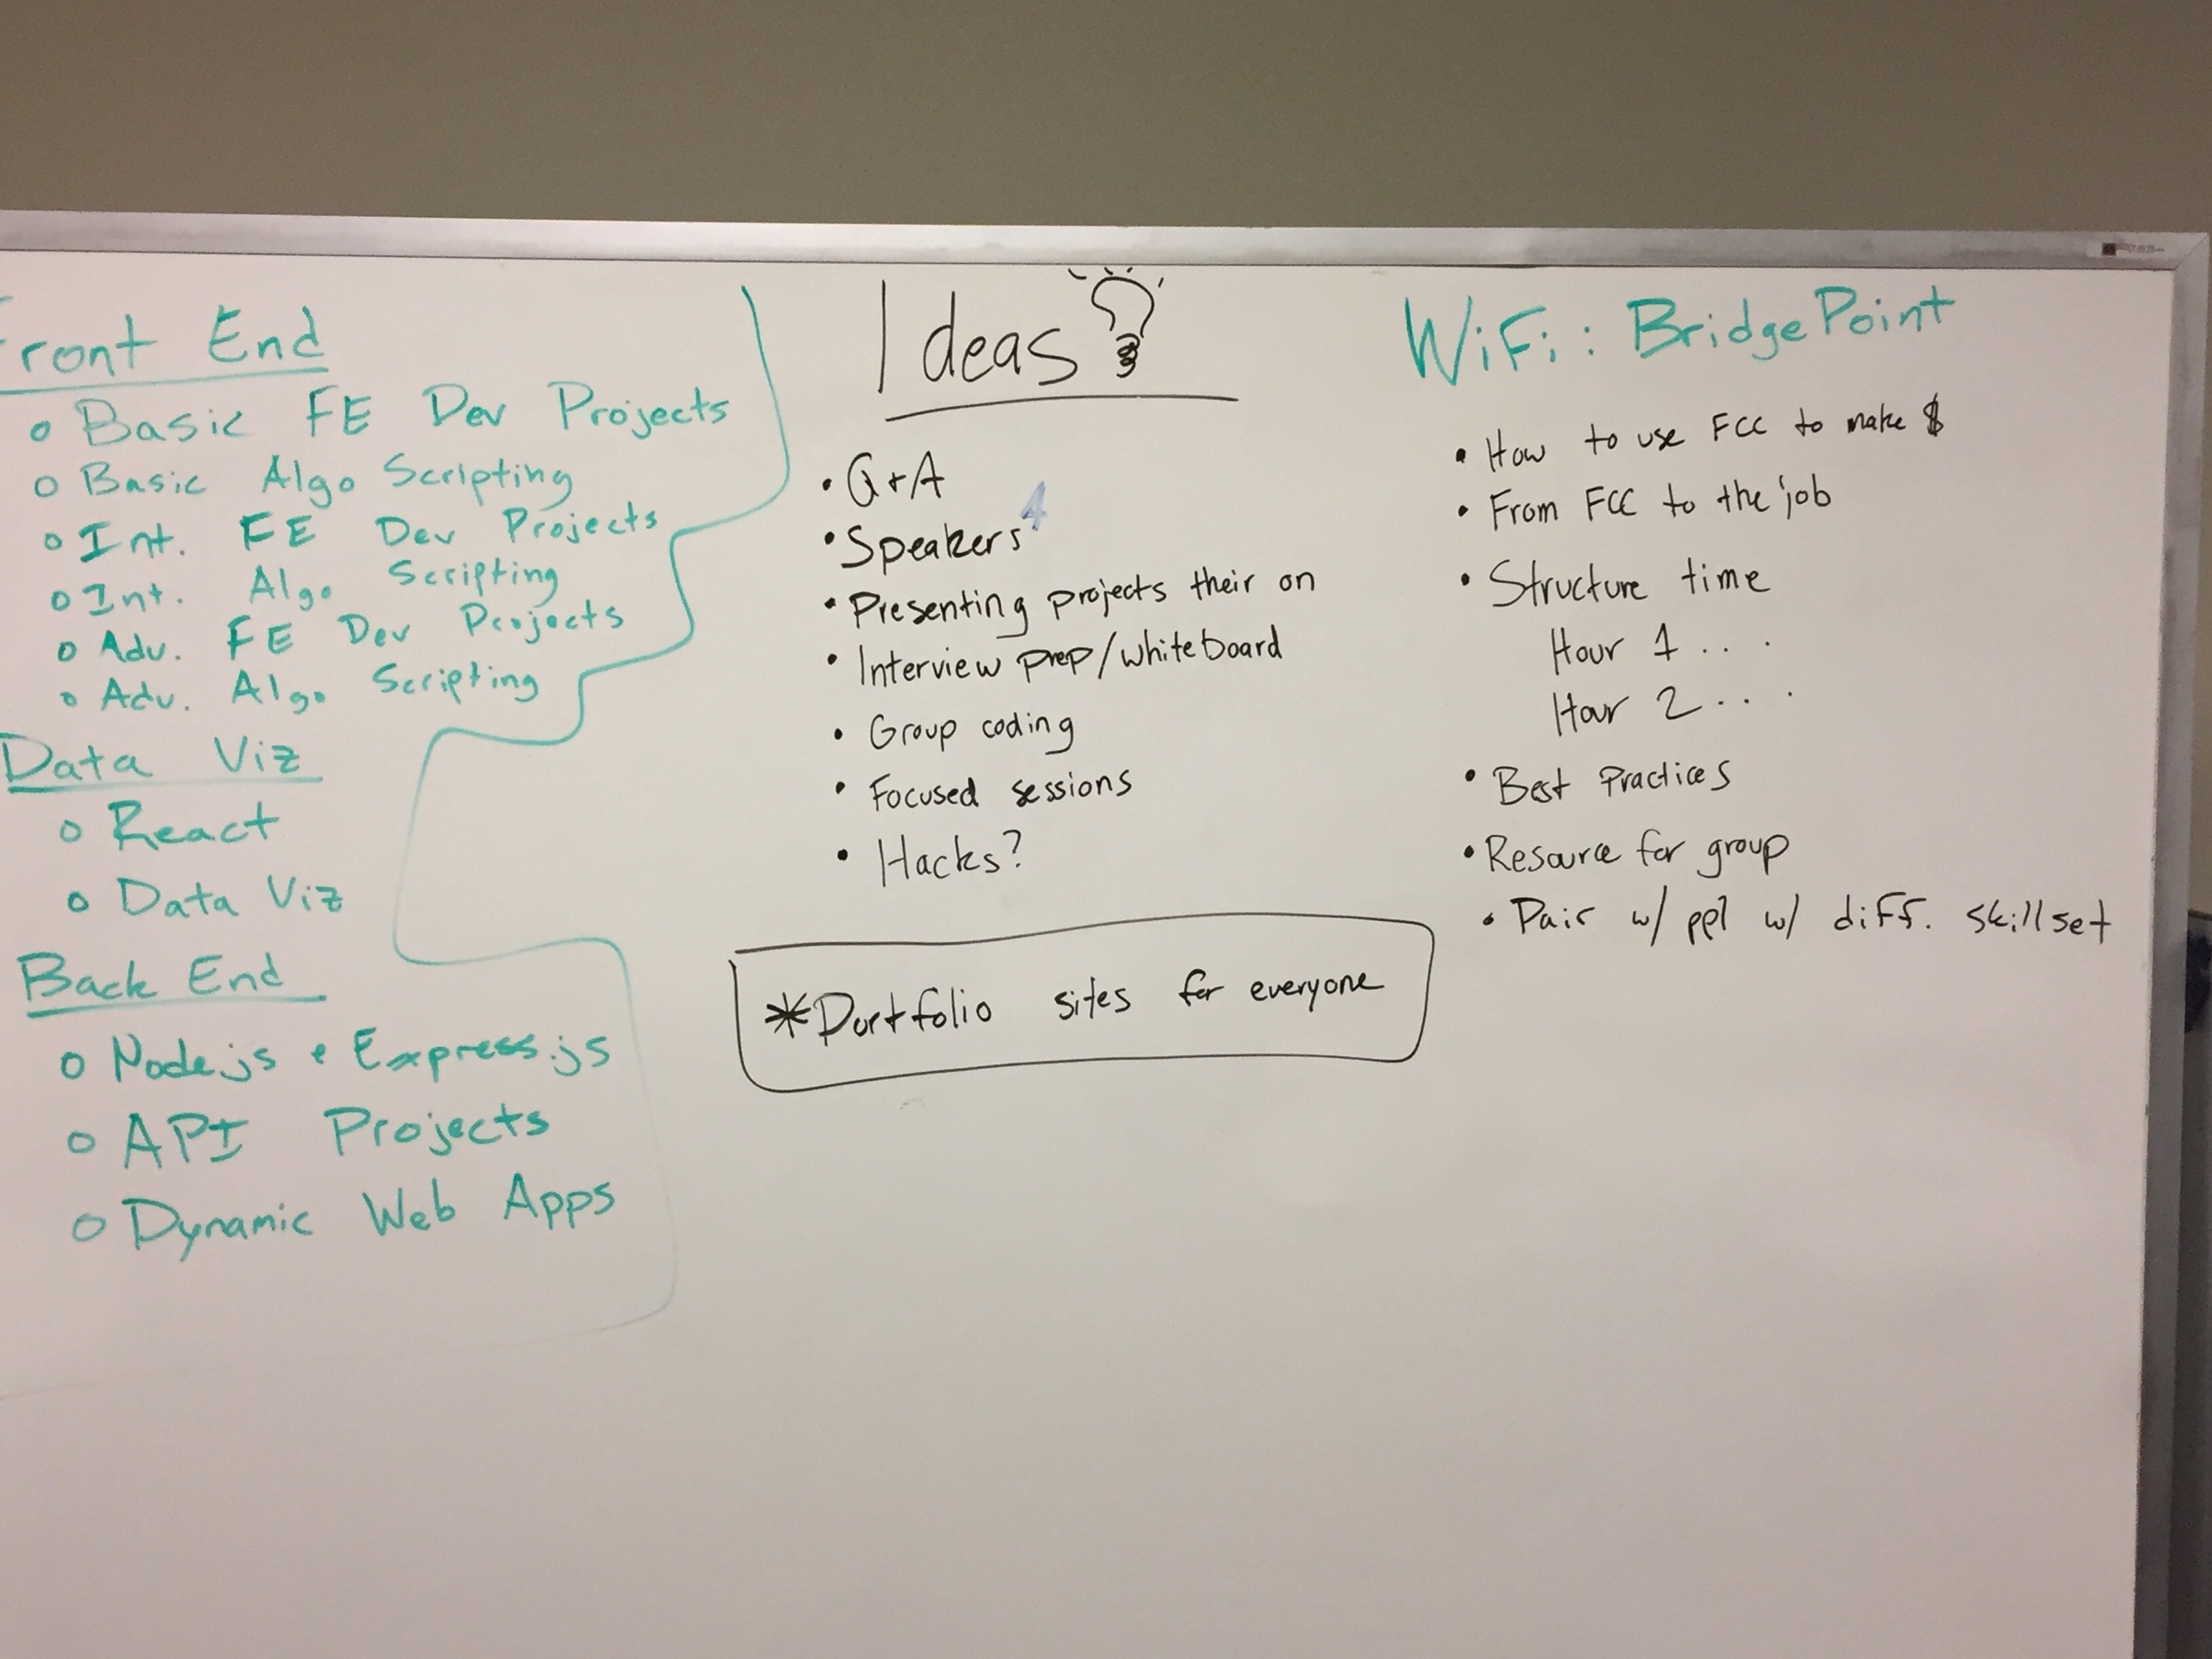 Front End
o Basic FE Dev Projects
o Basic Algo Scripting
o Int. FE Dev Projects
o Int. Algo Scripting
o Adv. FE Dev Projects
o Adv. Algo Scripting
Data Viz
o React
o Data Viz
Back End
o Node.js & Express.js
o API Projects
o Dynamic Web Apps
Ideas
• Q+A
• Speakers 4
• Presenting projects their on
• Interview prep/whiteboard
• Group coding
• Focused sessions
• Hacks?
*Portfolio sites for everyone
WiFi: BridgePoint
• How to use FCC to make $
• From FCC to the job
• Structure time
Hour 1 . . .
Hour 2 . . .
• Best Practices
• Resource for group
• Pair w/ ppl w/ diff. skillset